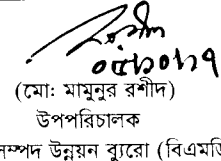 (মো: মামুনুর রশীদ)
উপপরিচালক
সম্পদ উন্নয়ন ব্যুরো (বিএমডি